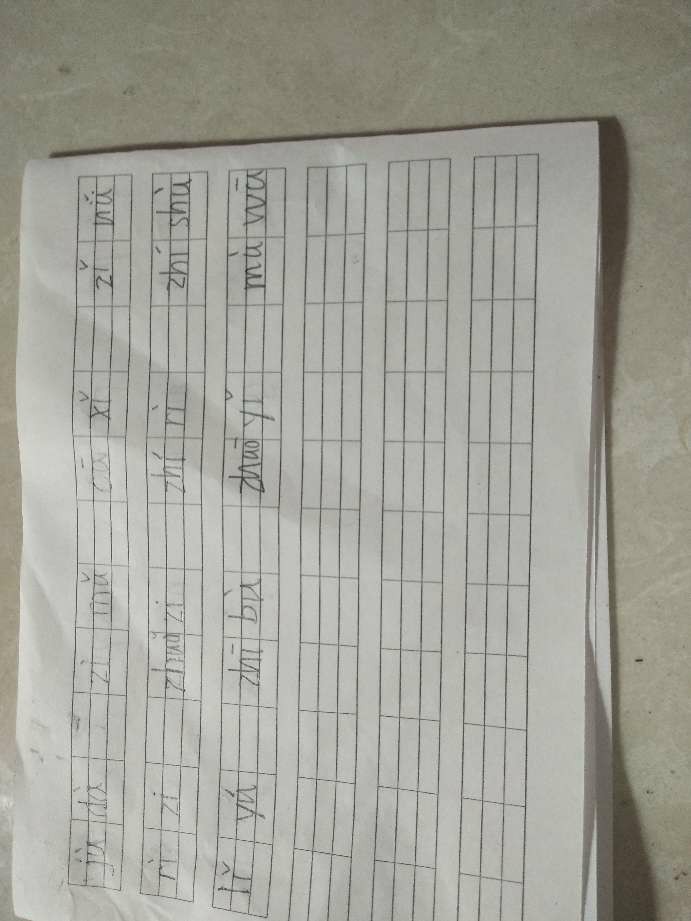 jù dà zì mǔ cā xǐ zǐ nǚ
rì zi zhuō zi zhí rì zhí shù
lǐ yú zhī bù zhuō yǐ mù wū